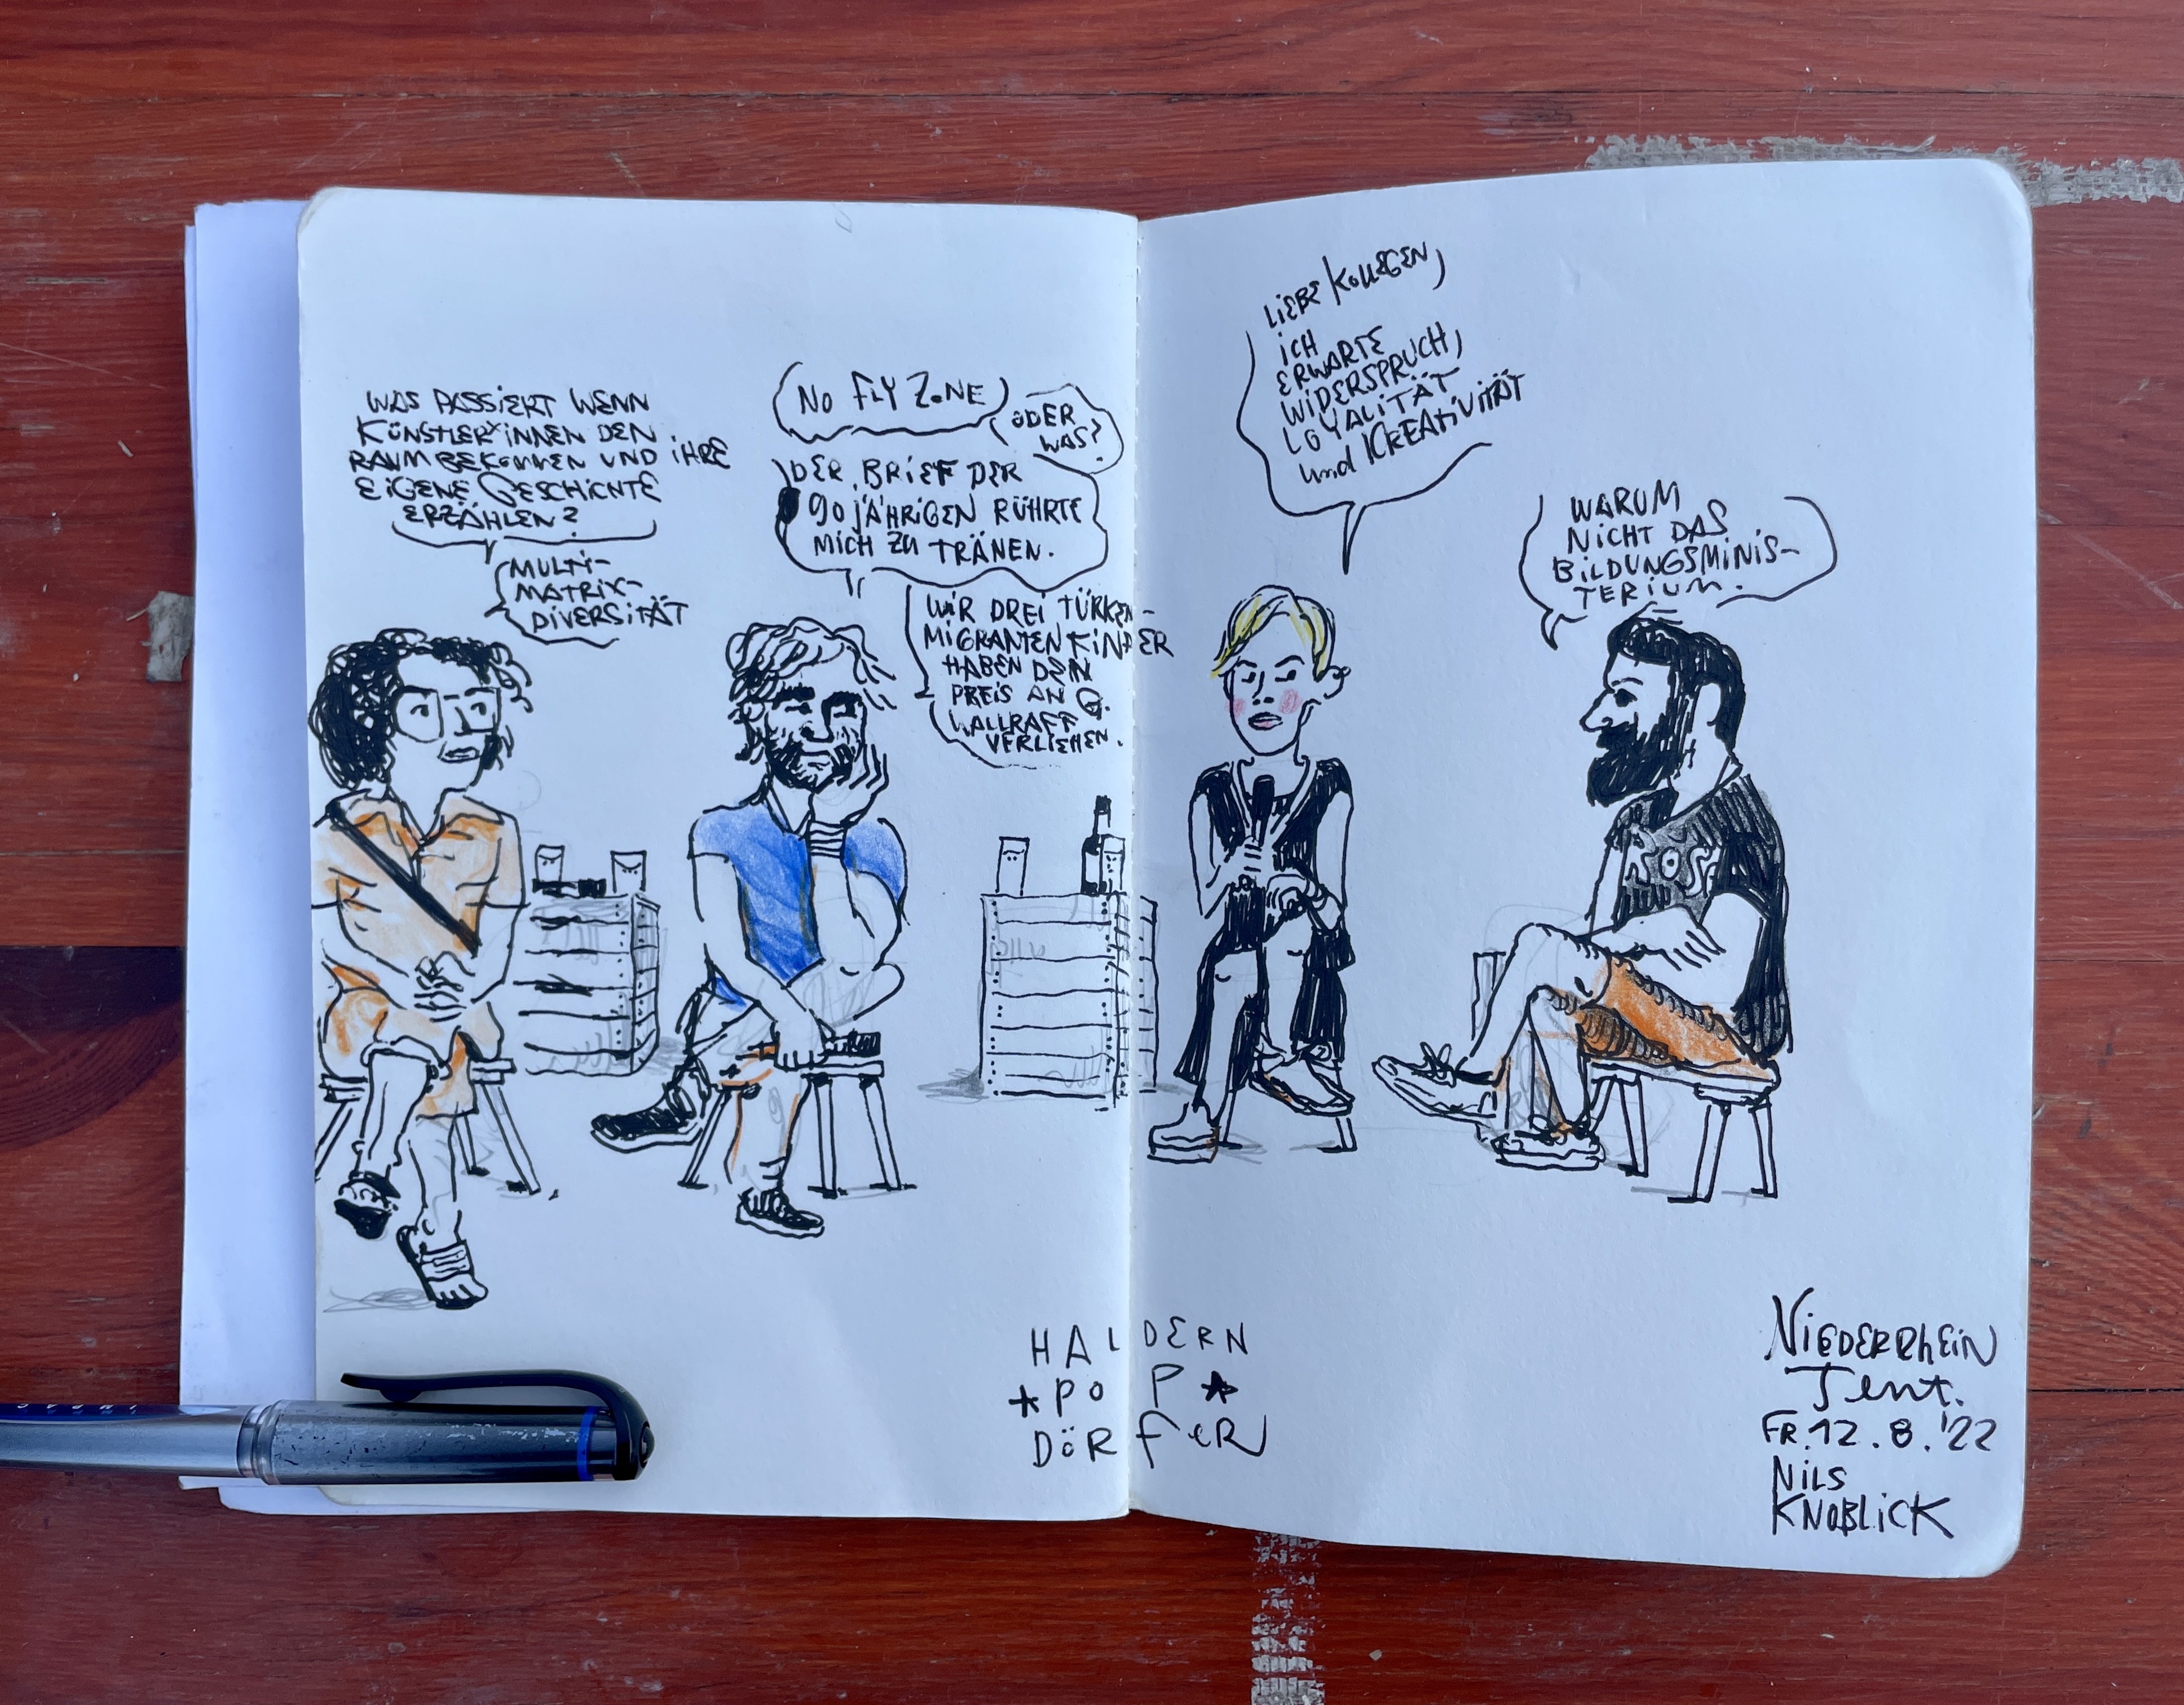 WAS PASSIERT WENN
KÜNSTLER*INNEN DEN
RAUM BEKOMMEN UND IHRE
EIGENE GESCHICHTE
ERZÄHLEN?
MULTI-
MATRIX-
DIVERSITÄT
NO FLY ZONE
ODER
WAS?
DER BRIEF DER
90 JÄHRIGEN RÜHRTE
MICH ZU TRÄNEN.
WIR DREI TÜRKEN-
MIGRANTENKINDER
HABEN DEN
PREIS AN G.
WALLRAFF
VERLIEHEN.
LIEBE KOLLEGEN,
ICH
ERWARTE
WIDERSPRUCH,
LOYALITÄT
und KREATIVITÄT
WARUM
NICHT DAS
BILDUNGSMINIS-
TERIUM.
HALDERN
★ POP ★
DÖRFER
NIEDERRHEIN
Tent.
FR. 12.8.'22
NILS
KNOBLICK